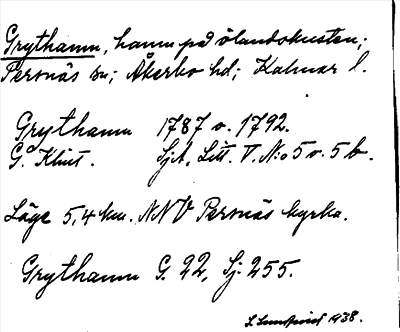 Grythamn, hamn på ölandskusten;
Persnäs sn; Åkerbo hd; Kalmar l.
Grythamn 1787 o. 1792.
G. Klint. SjA, Litt. V. N:o 5 o. 5 b.
Läge 5,4 km. NNV Persnäs kyrka.
Grythamn G. 22, Sj. 255.
1938.